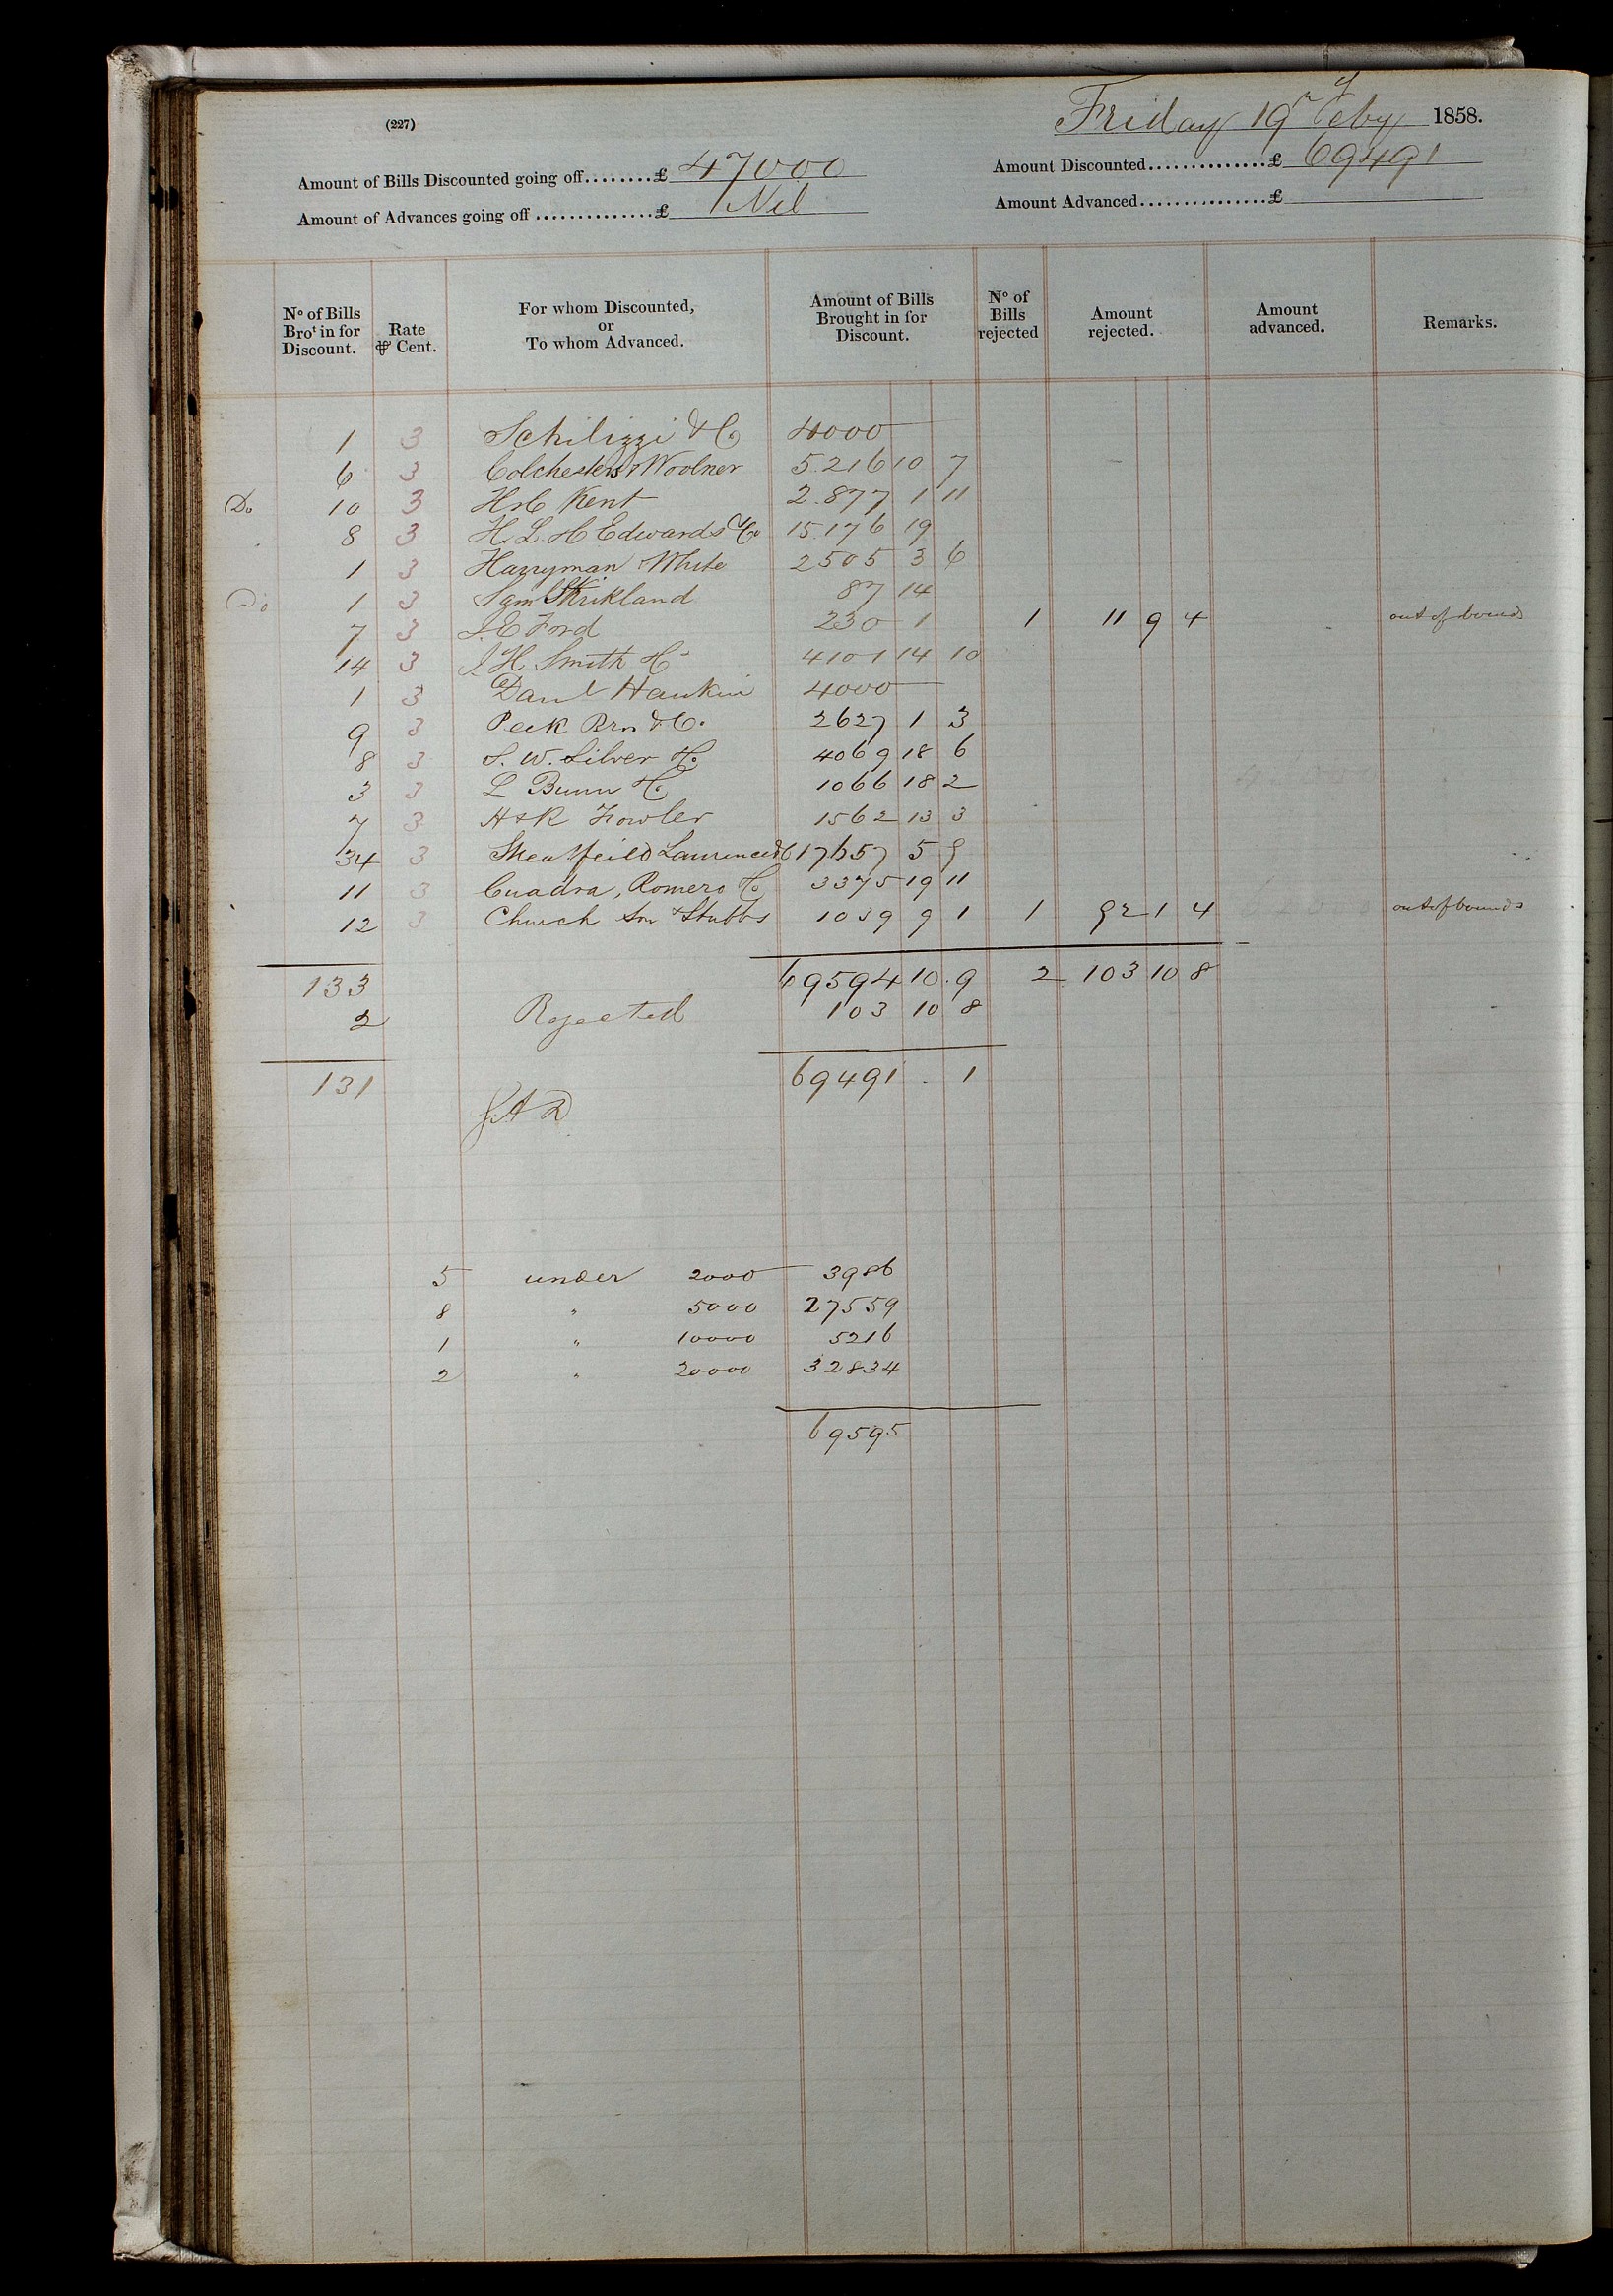 (227)
Friday 19th Feby 1858.
Amount of Bills Discounted going off........£ 47000
Amount Discounted..............£ 69491
Amount of Advances going off ...............£ Nil
Amount Advanced...............£
No of Bills Brot in for Discount. Rate ⅌ Cent. For whom Discounted, or To whom Advanced. Amount of Bills Brought in for Discount. No of Bills rejected Amount rejected. Amount advanced. Remarks.
1 3 Schilizzi & Co 4000
6 3 Colchester & Woolner 5.216 10 7
Do 10 3 H & C Kent 2.877 1 11
8 3 H. L. H Edwards & Co 15.176 19
1 3 Harryman White 2505 3 6
Do 1 3 Saml Strikland 87 14
7 3 J E Ford 230 1 1 11 9 4 out of bounds
14 3 J H Smith & Co 4101 14 10
1 3 Danl Hankin 4000
9 3 Peek Bros & Co. 2627 1 3
8 3 S. W. Silver & Co. 4069 18 6
3 3 L Bunn & Co 1066 18 2
7 3 H & R Fowler 1562 13 3
34 3 Sheaffeild Laurence & Co 17657 5 9
11 3 Cuadra, Romero & Co 3375 19 11
12 3 Church Son & Stubbs 1039 9 1 1 92 1 4 out of bounds
133 69594 10. 9 2 103 10 8
2 Rejected 103 10 8
131 69491 . 1
5 under 2000 3986
8 " 5000 27559
1 " 10000 5216
2 " 20000 32834
69595